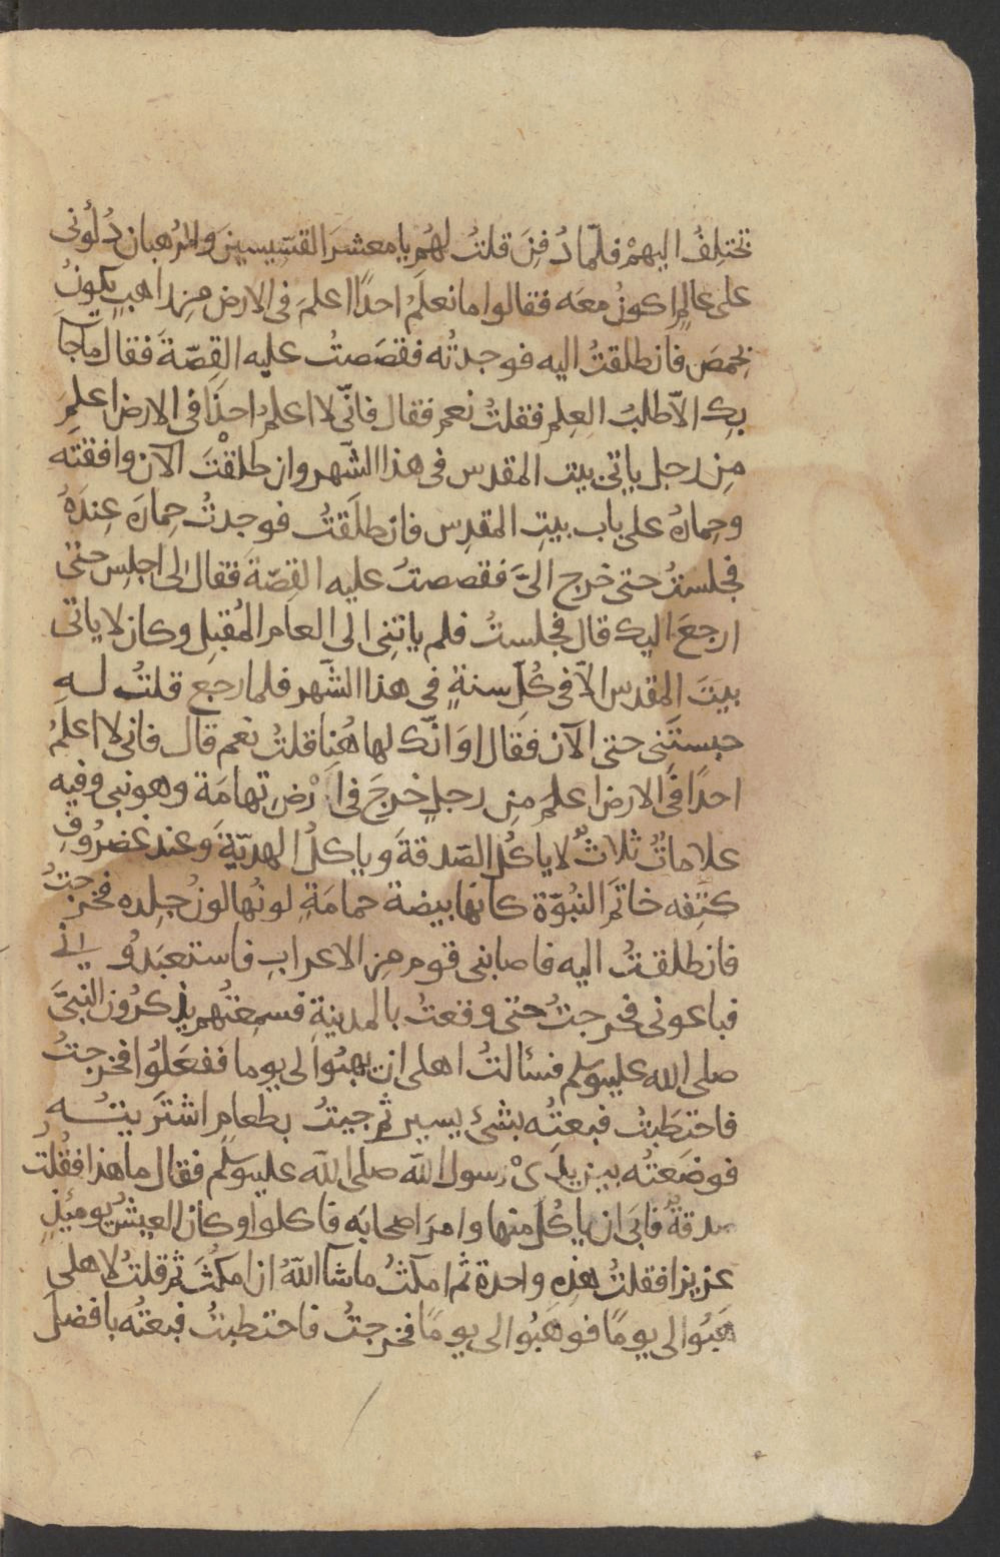 تختلِفُ اليهمْ فلمّا دُفِنَ قلتُ لهُم يا معشرَ القسّيسينَ والرُهبان دُلُّونى
على عالمٍ اكونُ معَه فقالوا ما نعلمُ احدًا اعلمَ فى الارض مِن راهبٍ يكونُ
بحِمصَ فانطلقتُ اليه فوجدتُه فقصَصتُ عليه القِصّةَ فقال ما جآ
بِك الاّ طلبُ العِلم فقلتُ نعم فقال فانّى لا اعلمُ احدًا فى الارض اعلمَ
مِن رجل ياتى بيت المقدس فى هذا الشّهر وان طلقْتَ الآن وافقتَه
وحِمارُه على باب بيتِ المقدِس فانطلَقتُ فوجدتُ حِمارَه عِندَهُ
فجلستُ حتى خرج الىَّ فقصصتُ عليه القِصّةَ فقال لى اجلِس حتى
ارجعَ اليك قال فجلستُ فلم ياتنِى الى العام المُقبِل وكان لا ياتى
بيتَ المقدس الاّ فى كُلّ سنةٍ فى هذا الشّهر فلما رجع قلتُ لهِ
حبستَنِى حتى الآن فقال اوَ انّك لهاهُنا قلتُ نعم قال فانى لا اعلمُ
احدًا فى الارض اعلمَ مِن رجلٍ خرجَ فى ارْضِ تِهامَة وهو نبى وفيه
علاماتٌ ثلاثٌ لا ياكُل الصّدقةَ وياكلُ الهديّةَ وعند غضرُوفِ
كتِفه خاتَم النُبُوّة كانّها بيضة حمامَةٍ لونُها لونُ جِلدِه فخرجتُ
فانطلقتُ اليه فاصابنى قوم مِن الاعرابِ فاستعبَدُونى
فباعونى فخرجتُ حتى وقعتُ بالمدينةِ فسمِعتُهم يذكرُون النبىَّ
صلى الله عليه وسلم فسئالتُ اهلى ان يهبُوا لى يوما ففعَلُوا فخرجتُ
فاحتطَبتُ فبعتُه بشئ يسير ثم جيتُ بطعامٍ اشترَيتُه
فوضَعتُه بين يدَىْ رسول الله صلى الله عليه وسلم فقال ما هذا فقُلتُ
صدقةٌ فابَى ان ياكُلَ منها وامرَ اصحابَه فاكلوا وكان العيشُ يوميُذٍ
عزيزا فقلتُ هذِه واحدة ثم امكثُ ما شآ اللهُ ان امكُثَ ثم قلتُ لاهلى
هَبُوا لى يومًا فوهَبُوا لى يومًا فخرجتُ فاحتطبتُ فبعتُه بافضلَ